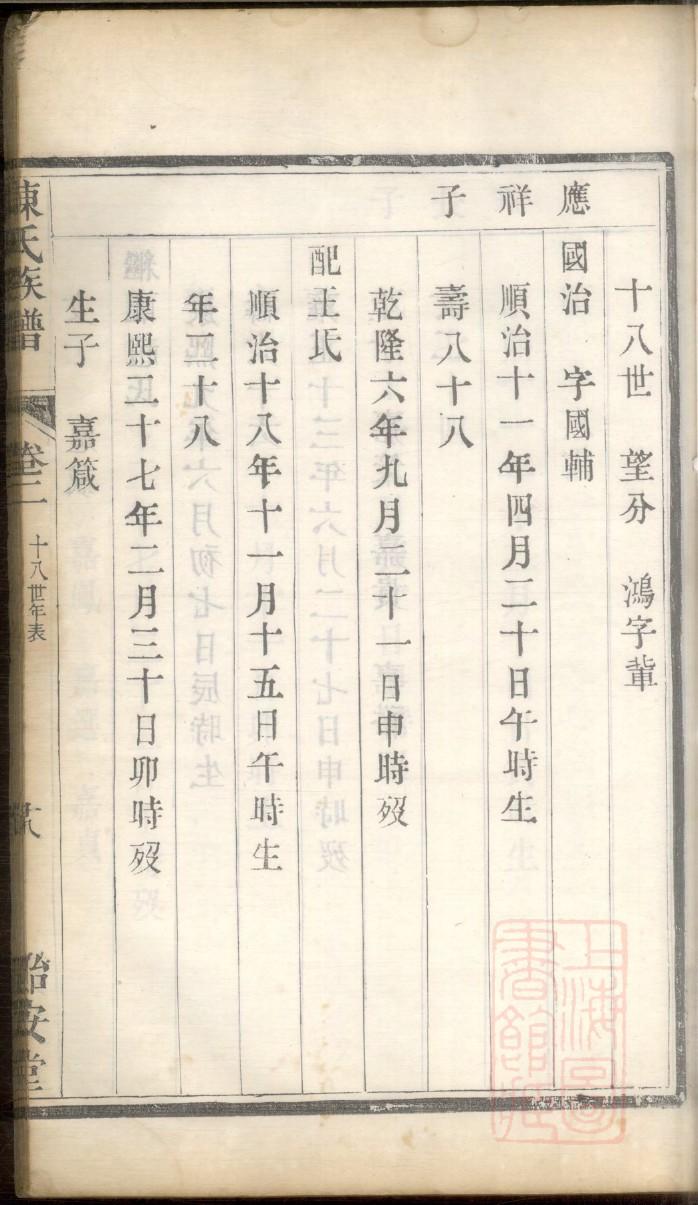 十八世　望分　鴻字輩
應祥子
國治　字國輔
順治十一年四月二十日午時生
壽八十八
乾隆六年九月二十一日申時歿
配王氏
順治十八年十一月十五日午時生
年三十八
康熙三十七年二月三十日卯時歿
生子　嘉箴
陳氏族譜
卷二
十八世年表
怡安堂
上海圖書館藏